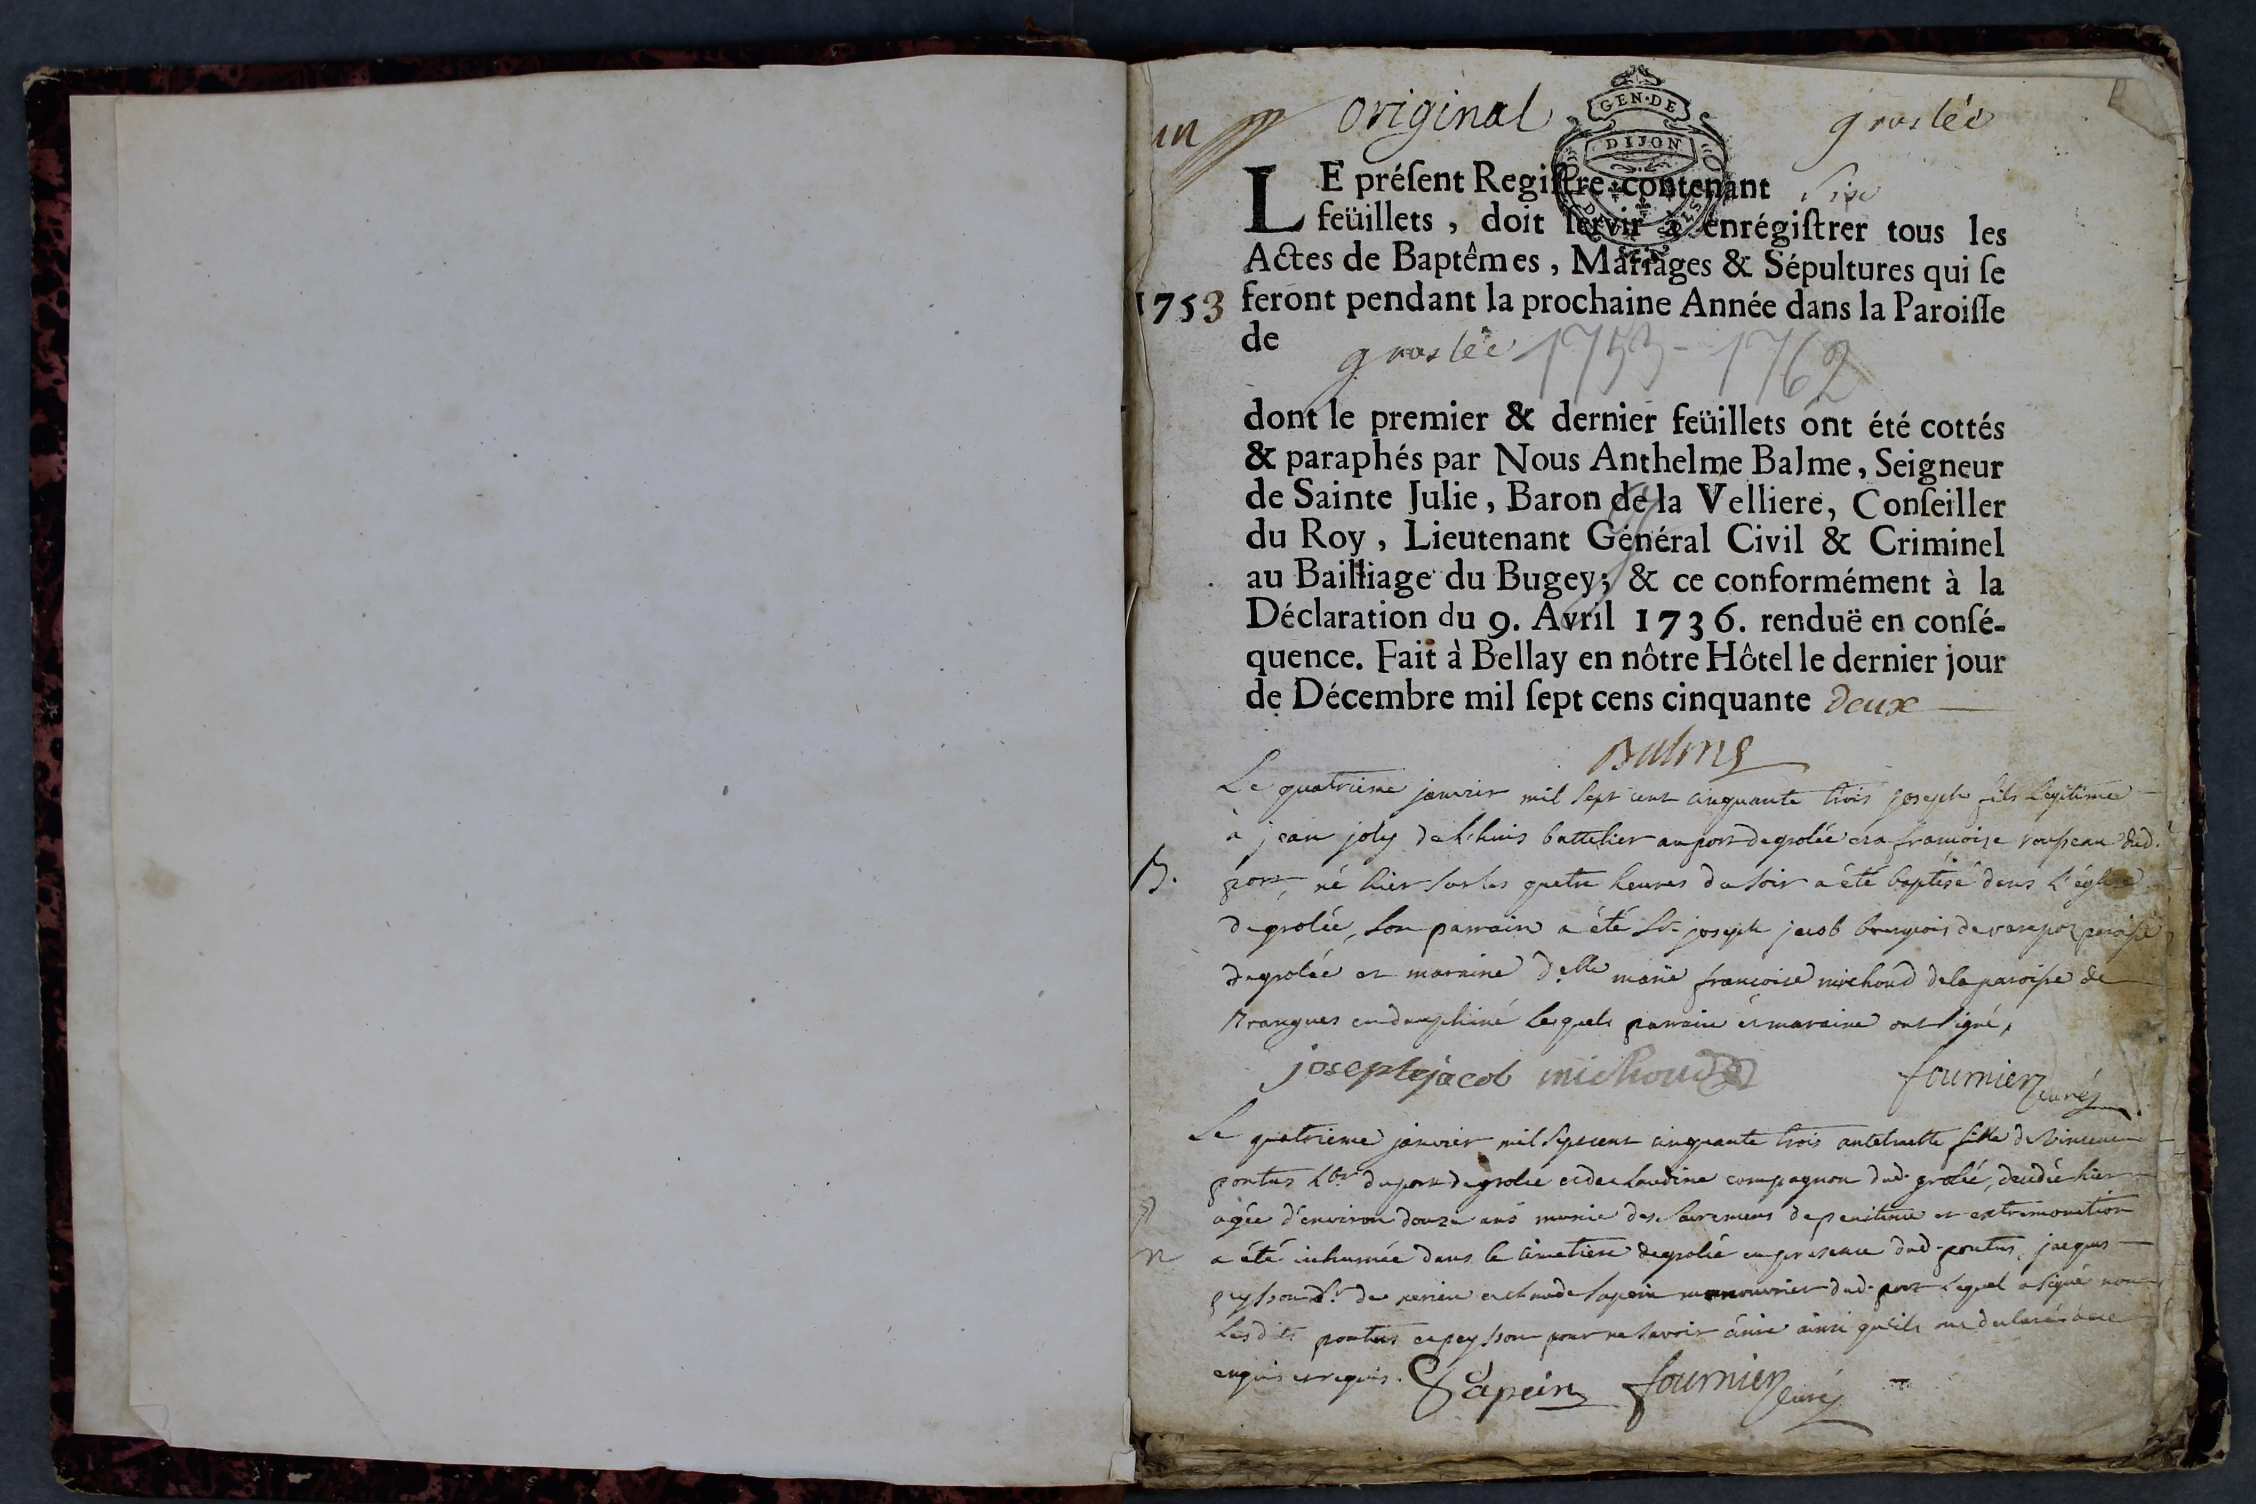 un original groslée
GEN·DE
DIJON
LE préſent Regiſtre contenant Six
feüillets, doit ſervir à enrégiſtrer tous les
Actes de Baptêmes, Mariages & Sépultures qui ſe
1753 feront pendant la prochaine Année dans la Paroiſſe
de groslée 1753-1762
dont le premier & dernier feüillets ont été cottés
& paraphés par Nous Anthelme Balme, Seigneur
de Sainte Julie, Baron de la Velliere, Conſeiller
du Roy, Lieutenant Général Civil & Criminel
au Bailliage du Bugey; & ce conformément à la
Déclaration du 9. Avril 1736. renduë en conſé-
quence. Fait à Bellay en nôtre Hôtel le dernier jour
de Décembre mil ſept cens cinquante deux
Balme
Le quatrieme janvier mil sept cent cinquante trois joseph fils legitime
à jean joly de Lhuis battelier au port de grolée et a francoise rousseau dud.
B. port, né hier sur les quatre heures du soir a été baptisé dans l'église
de grolée, son parrain a été Sr joseph jacob bourgeois de paroisse
de grolée et maraine delle marie francoise michoud de la paroisse de
Brangues en dauphiné lesquels parrain et maraine ont signé,
joseph jacob michoud fournier curé
Le quatrieme janvier mil sept cent cinquante trois fille de vincent
pontus Lbr du port de grolée et de claudine compagnon dud. grolée, decedée hier
agée d'environ douze ans munie des sacremens de penitence et extremonction
a été inhumée dans le cimetiere de grolée en presence dud. pontus, jacques
peysson Lr de et claude sapein manouvrier dud. port lequel a signé non
lesdits pontus et peysson pour ne savoir écrire ainsi qu'ils ont declaré de ce
enquis et requis. Sapein fournier curé